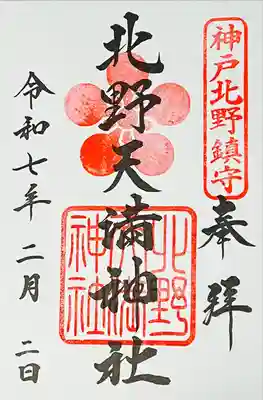 神戸北野鎮守
奉拝
北野天満神社
北野天満神社
令和七年二月二日